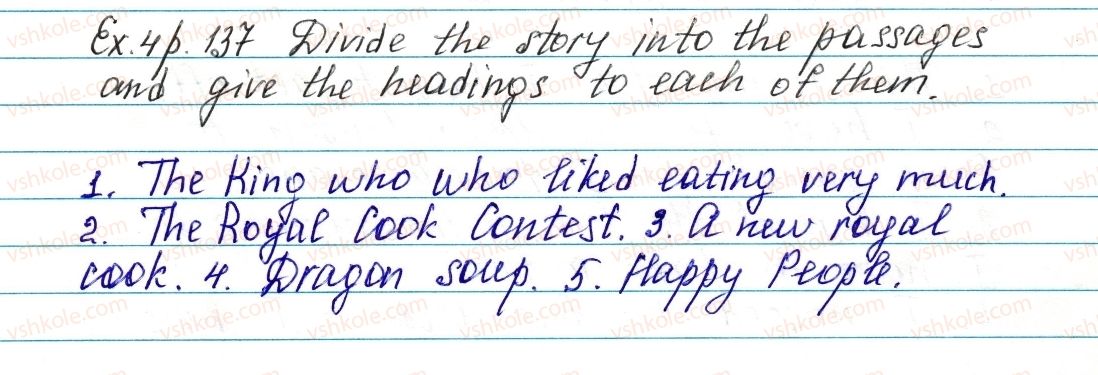 Ex. 4 p. 137 Divide the story into the passages
and give the headings to each of them.
1. The King who who liked eating very much.
2. The Royal Cook Contest. 3. A new royal
cook. 4. Dragon soup. 5. Happy People.